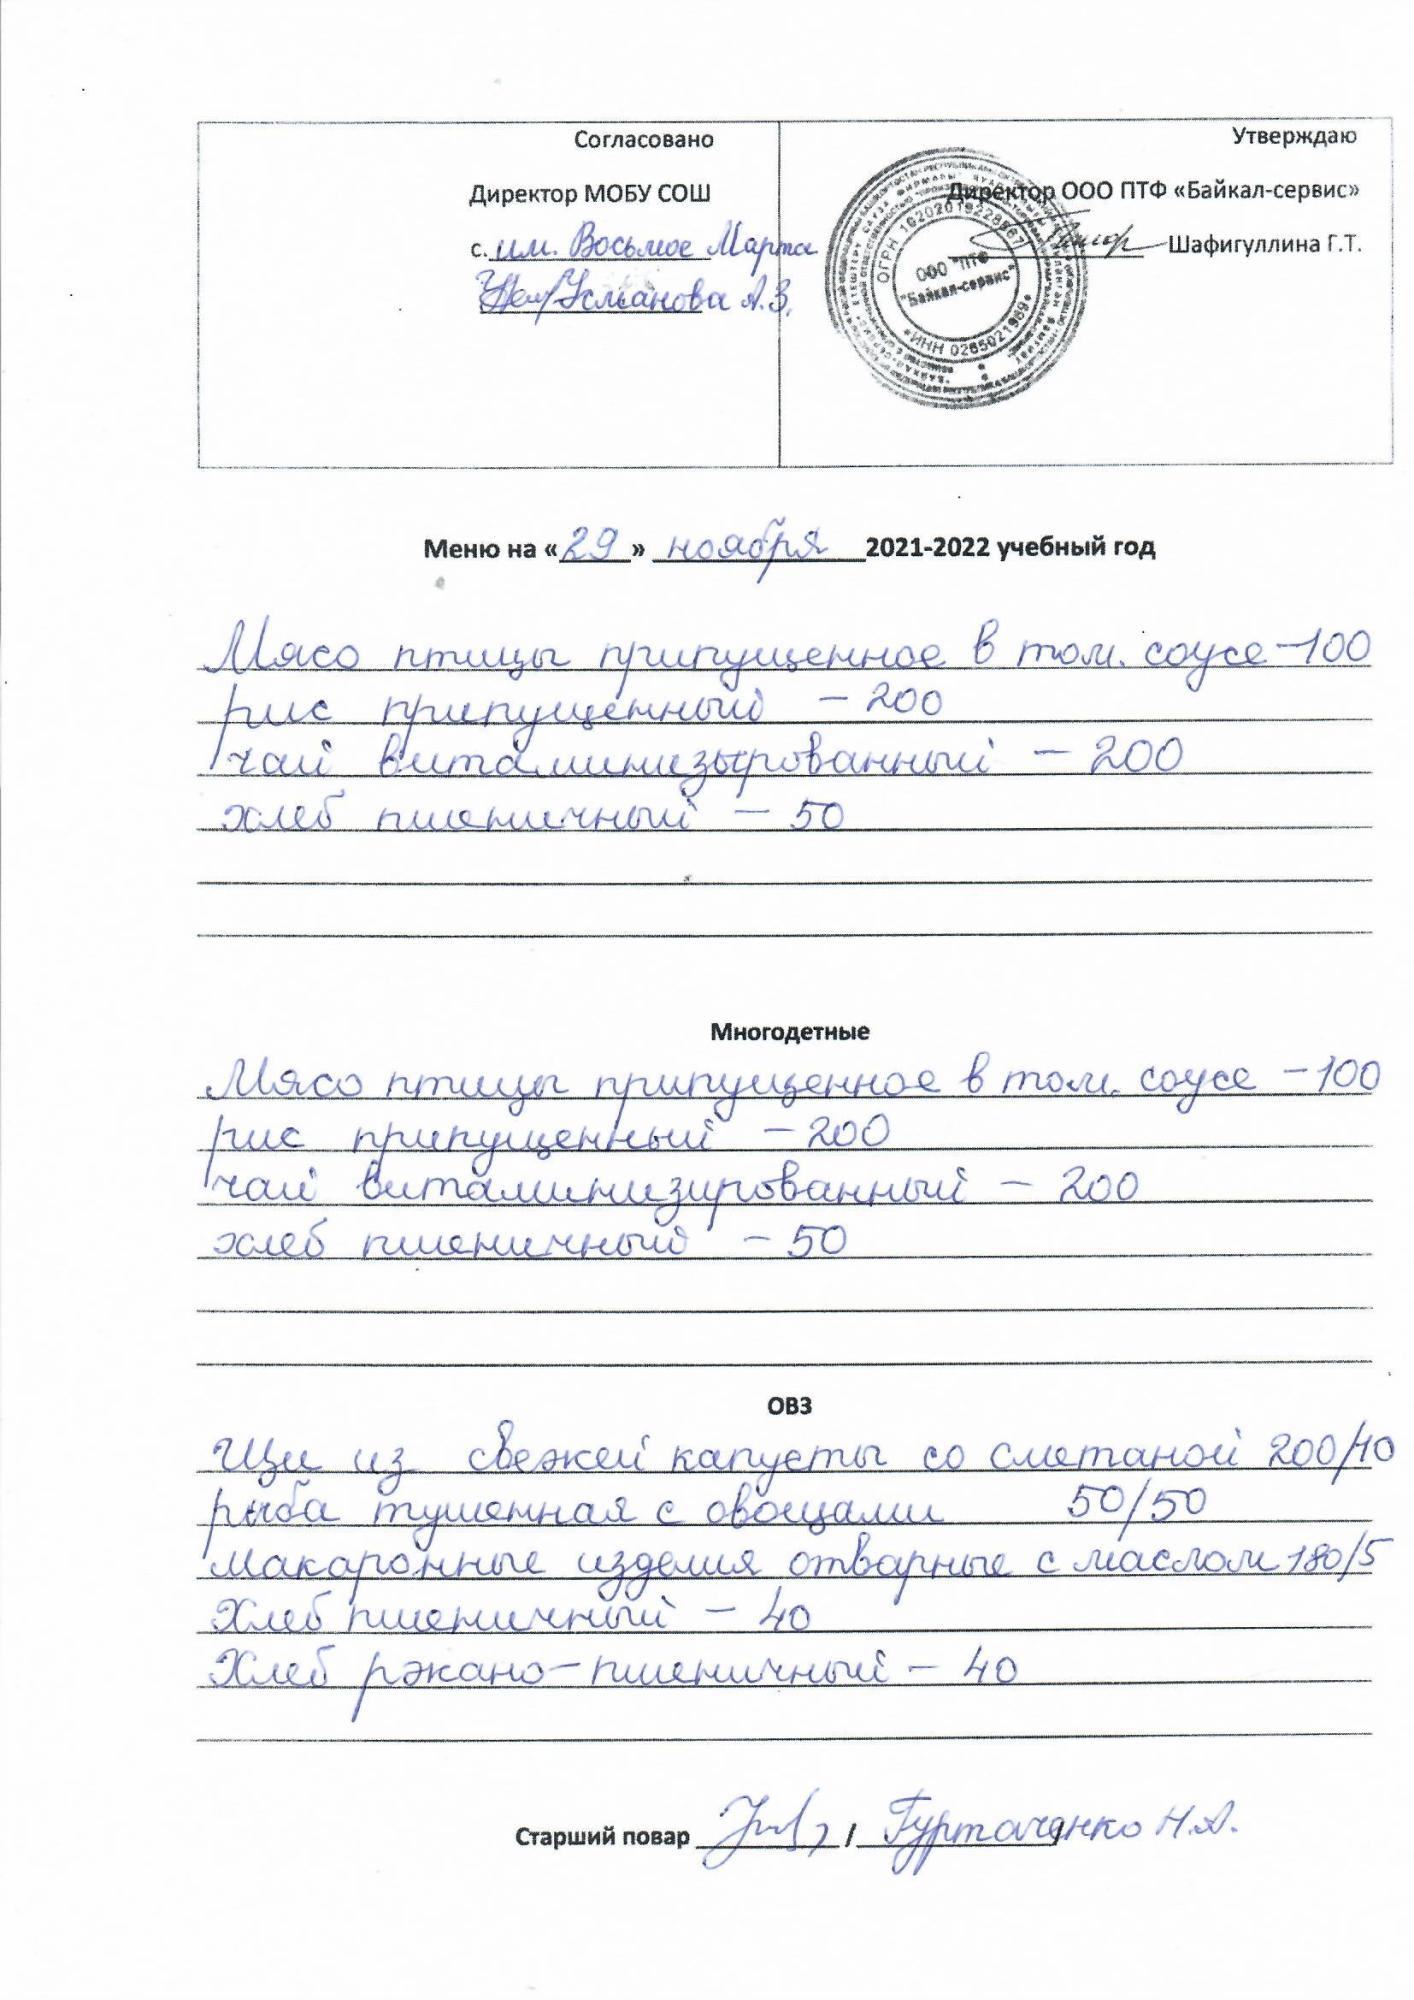 Согласовано
Директор МОБУ СОШ
с. им. Восьмое Марта
Усманова А.З.
Утверждаю
Директор ООО ПТФ «Байкал-сервис»
Шафигуллина Г.Т.
ООО "ПТФ
"Байкал-сервис"
ИНН 0265021969
Меню на «29» ноября 2021-2022 учебный год
Мясо птицы припущенное в том. соусе - 100
рис припущенный - 200
чай витаминизырованный - 200
хлеб пшеничный - 50
Многодетные
Мясо птицы припущенное в том. соусе - 100
рис припущенный - 200
чай витаминизированный - 200
хлеб пшеничный - 50
ОВЗ
Щи из свежей капусты со сметаной 200/10
рыба тушенная с овощами 50/50
макаронные изделия отварные с маслом 180/5
Хлеб пшеничный - 40
Хлеб ржано-пшеничный - 40
Старший повар / Гуртаченко Н.А.